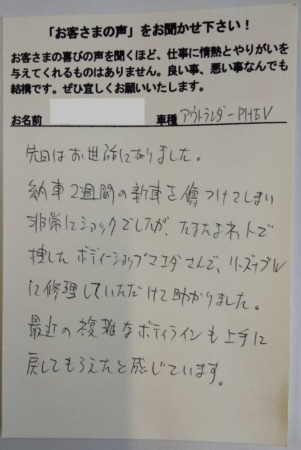 「お客さまの声」をお聞かせ下さい！
お客さまの喜びの声を聞くほど、仕事に情熱とやりがいを
与えてくれるものはありません。良い事、悪い事なんでも
結構です。ぜひ宜しくお願いいたします。
お名前 車種 アウトランダーPHEV
先日はお世話になりました。
納車2週間の新車を傷つけてしまい
非常にショックでしたが、たまたまネットで
捜した ボディーショップマエダさんで、リーズナブル
に修理していただけて助かりました。
最近の複雑なボディラインも上手に
戻してもらえたと感じています。